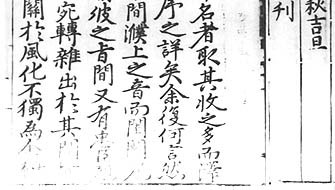 秋吉旦
刊
名者取其收之多而擇
序之詳矣余復何言然
間濮上之音而閭閻
彼之旨間又有
宛轉雜出於其
關於風化不獨為